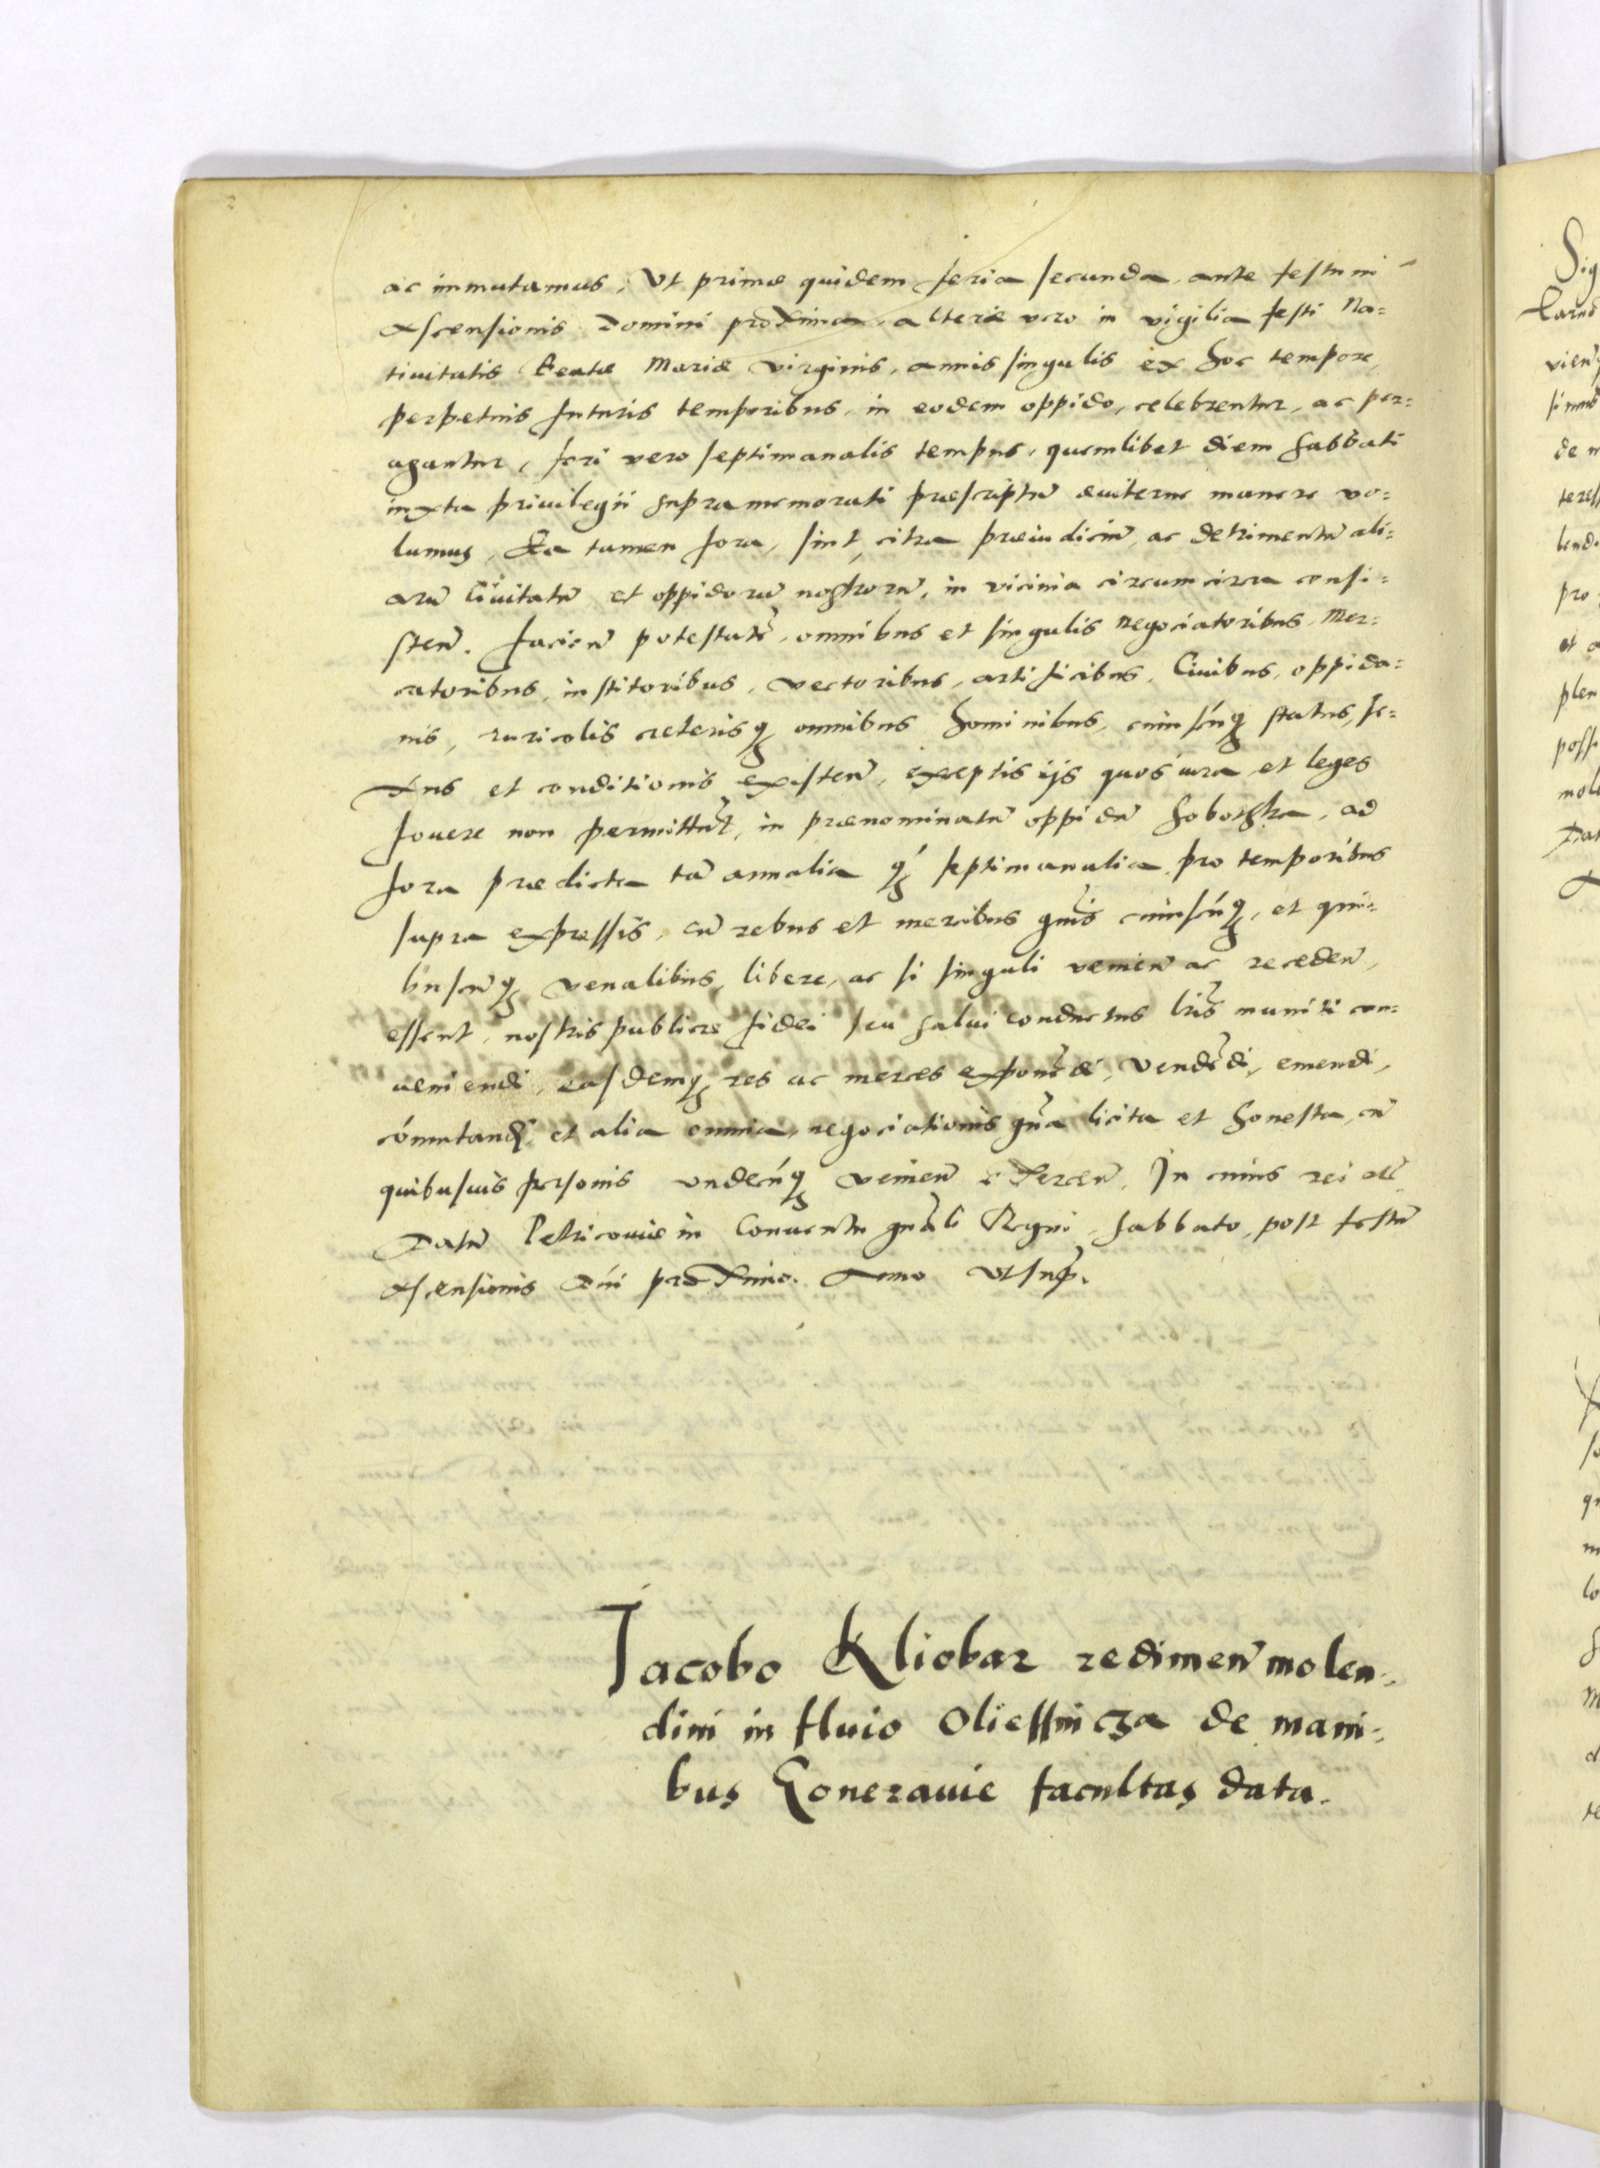 ac immutamus, Vt primæ quidem feria secunda, ante festum
Ascensionis Domini proxima, alteræ vero in vigilia festi Na=
tiuitatis Beatæ Mariæ Virginis, annis singulis ex hoc tempore,
perpetuis futuris temporibus, in eodem oppido, celebrentur, ac per=
agantur, fori vero septimanalis tempus, quemlibet diem sabbati
iuxta priuilegii supra memorati præscriptũ æuiterne manere vo=
lumus, Ea tamen fora, sint citra præiudiciũ, ac detrimentũ ali=
arũ Ciuitatũ et oppidorũ nostrorũ, in vicinia circumcirca consi=
steñ. Facieñ potestatẽ, omnibus et singulis negociatoribus, Mer=
catoribus, institoribus, vectoribus, artificibus, Ciuibus, oppida=
nis, ruricolis cæterisq omnibus hominibus, cuiuscũq status, se=
xus et conditionis existeñ, exceptis ijs quos iura et leges
fouere non permittũt, in prænominatũ oppidũ Sobothka, ad
fora prædicta tã annalia q̃ septimanalia, pro temporibus
supra expressis, cũ rebus et mercibus gñis cuiuscũq, et qui=
buscũq venalibus, libere, ac si singuli venieñ ac recedeñ,
essent, nostris publicæ fidei seu salui conductus lr̃is muniti con=
ueniendi, easdemq res ac merces exponẽdi, vendẽdi, emendi,
cómutandi, et alia omnia, negociationis gña licita et honesta, cũ
quibusuis personis vndecũq venieñ exerceñ. In cuius rei
Datũ Petricouiæ in Conuentu gñali Regni, sabbato, post festũ
Ascensionis Dñi proximo. Anno Vt sup.
Jacobo Kliobar redimeñ molen=
dini in fluio Oliessnicza de mani=
bus Goneranie facultas data.